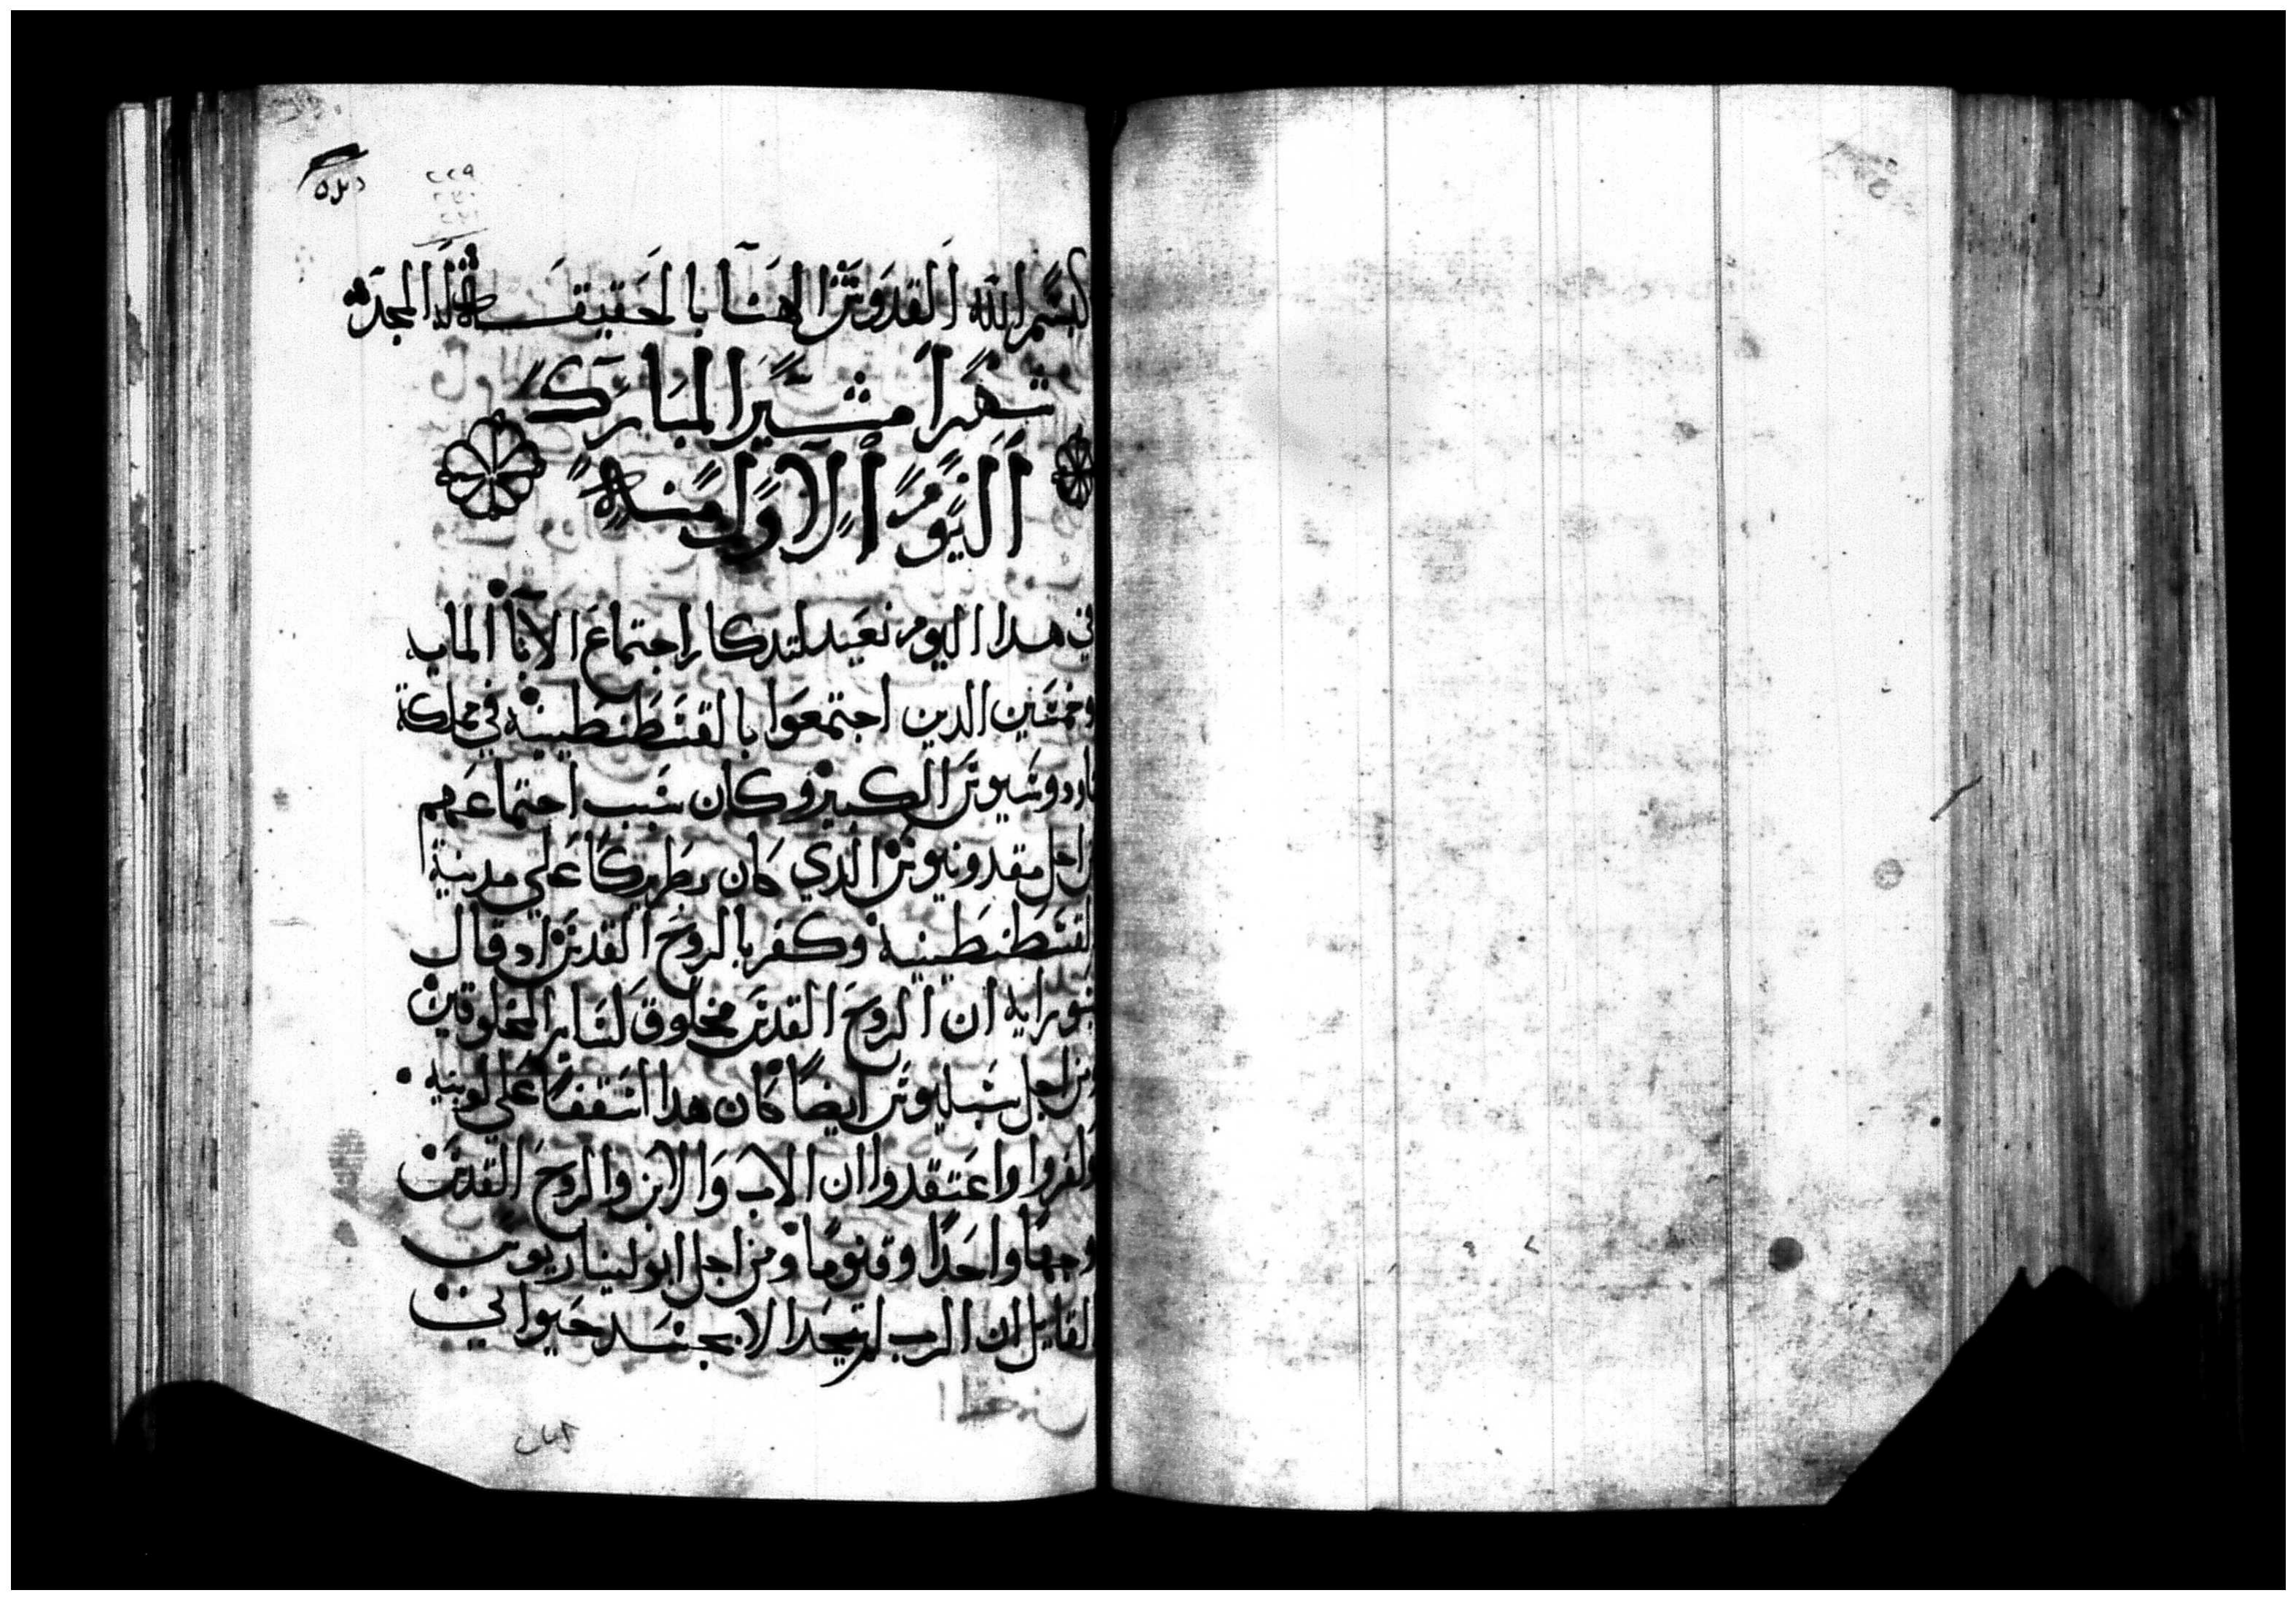 ٢٢٩
٢٣٠
٢٣١
بسم الله القدوس الاهنا بالحقيقه له المجد
شهر امشير المبارك
اليوم الاول منه
في هدا اليوم نعيد لتدكار اجتماع الابا المايه
وخمسين الدين اجتمعوا بالقسطنطينيه في مملكة
تاودوسيوس الكبير وكان سبب اجتماعهم
من اجل مقدونيوس الدي كان بطريركا علي مدينة
القسطنطينيه وكفر بالروح القدس اد قال
بسو رايه ان الروح القدس مخلوق لساير المخلوقين
ومن اجل سبليوس ايضا كان هدا اسقفا علي لوبيه
وكفروا واعتقدوا ان الاب والابن والروح القدس
وجها واحدا وقنوما ومن اجل ابوليناريوس
القايل ان الرب لم يتحد الا بجسد حيواني